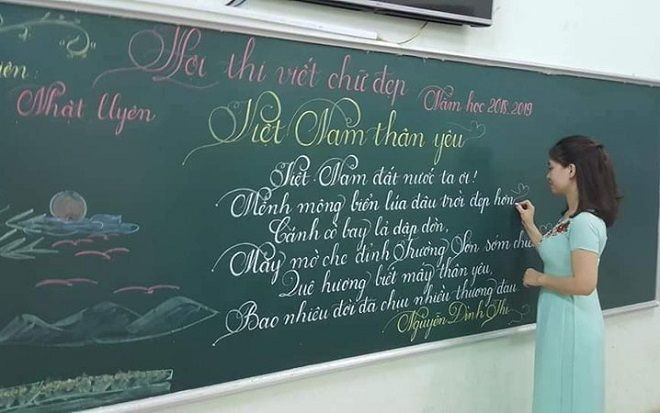 Hội thi viết chữ đẹp
Năm học 2018-2019
ên:
Nhật Uyên
Việt Nam thân yêu
Việt Nam đất nước ta ơi!
Mênh mông biển lúa đâu trời đẹp hơn
Cánh cò bay lả dập dờn,
Mây mờ che đỉnh Trường Sơn sớm chi
Quê hương biết mấy thân yêu,
Bao nhiêu đời đã chịu nhiều thương đau
Nguyễn Đình Thi